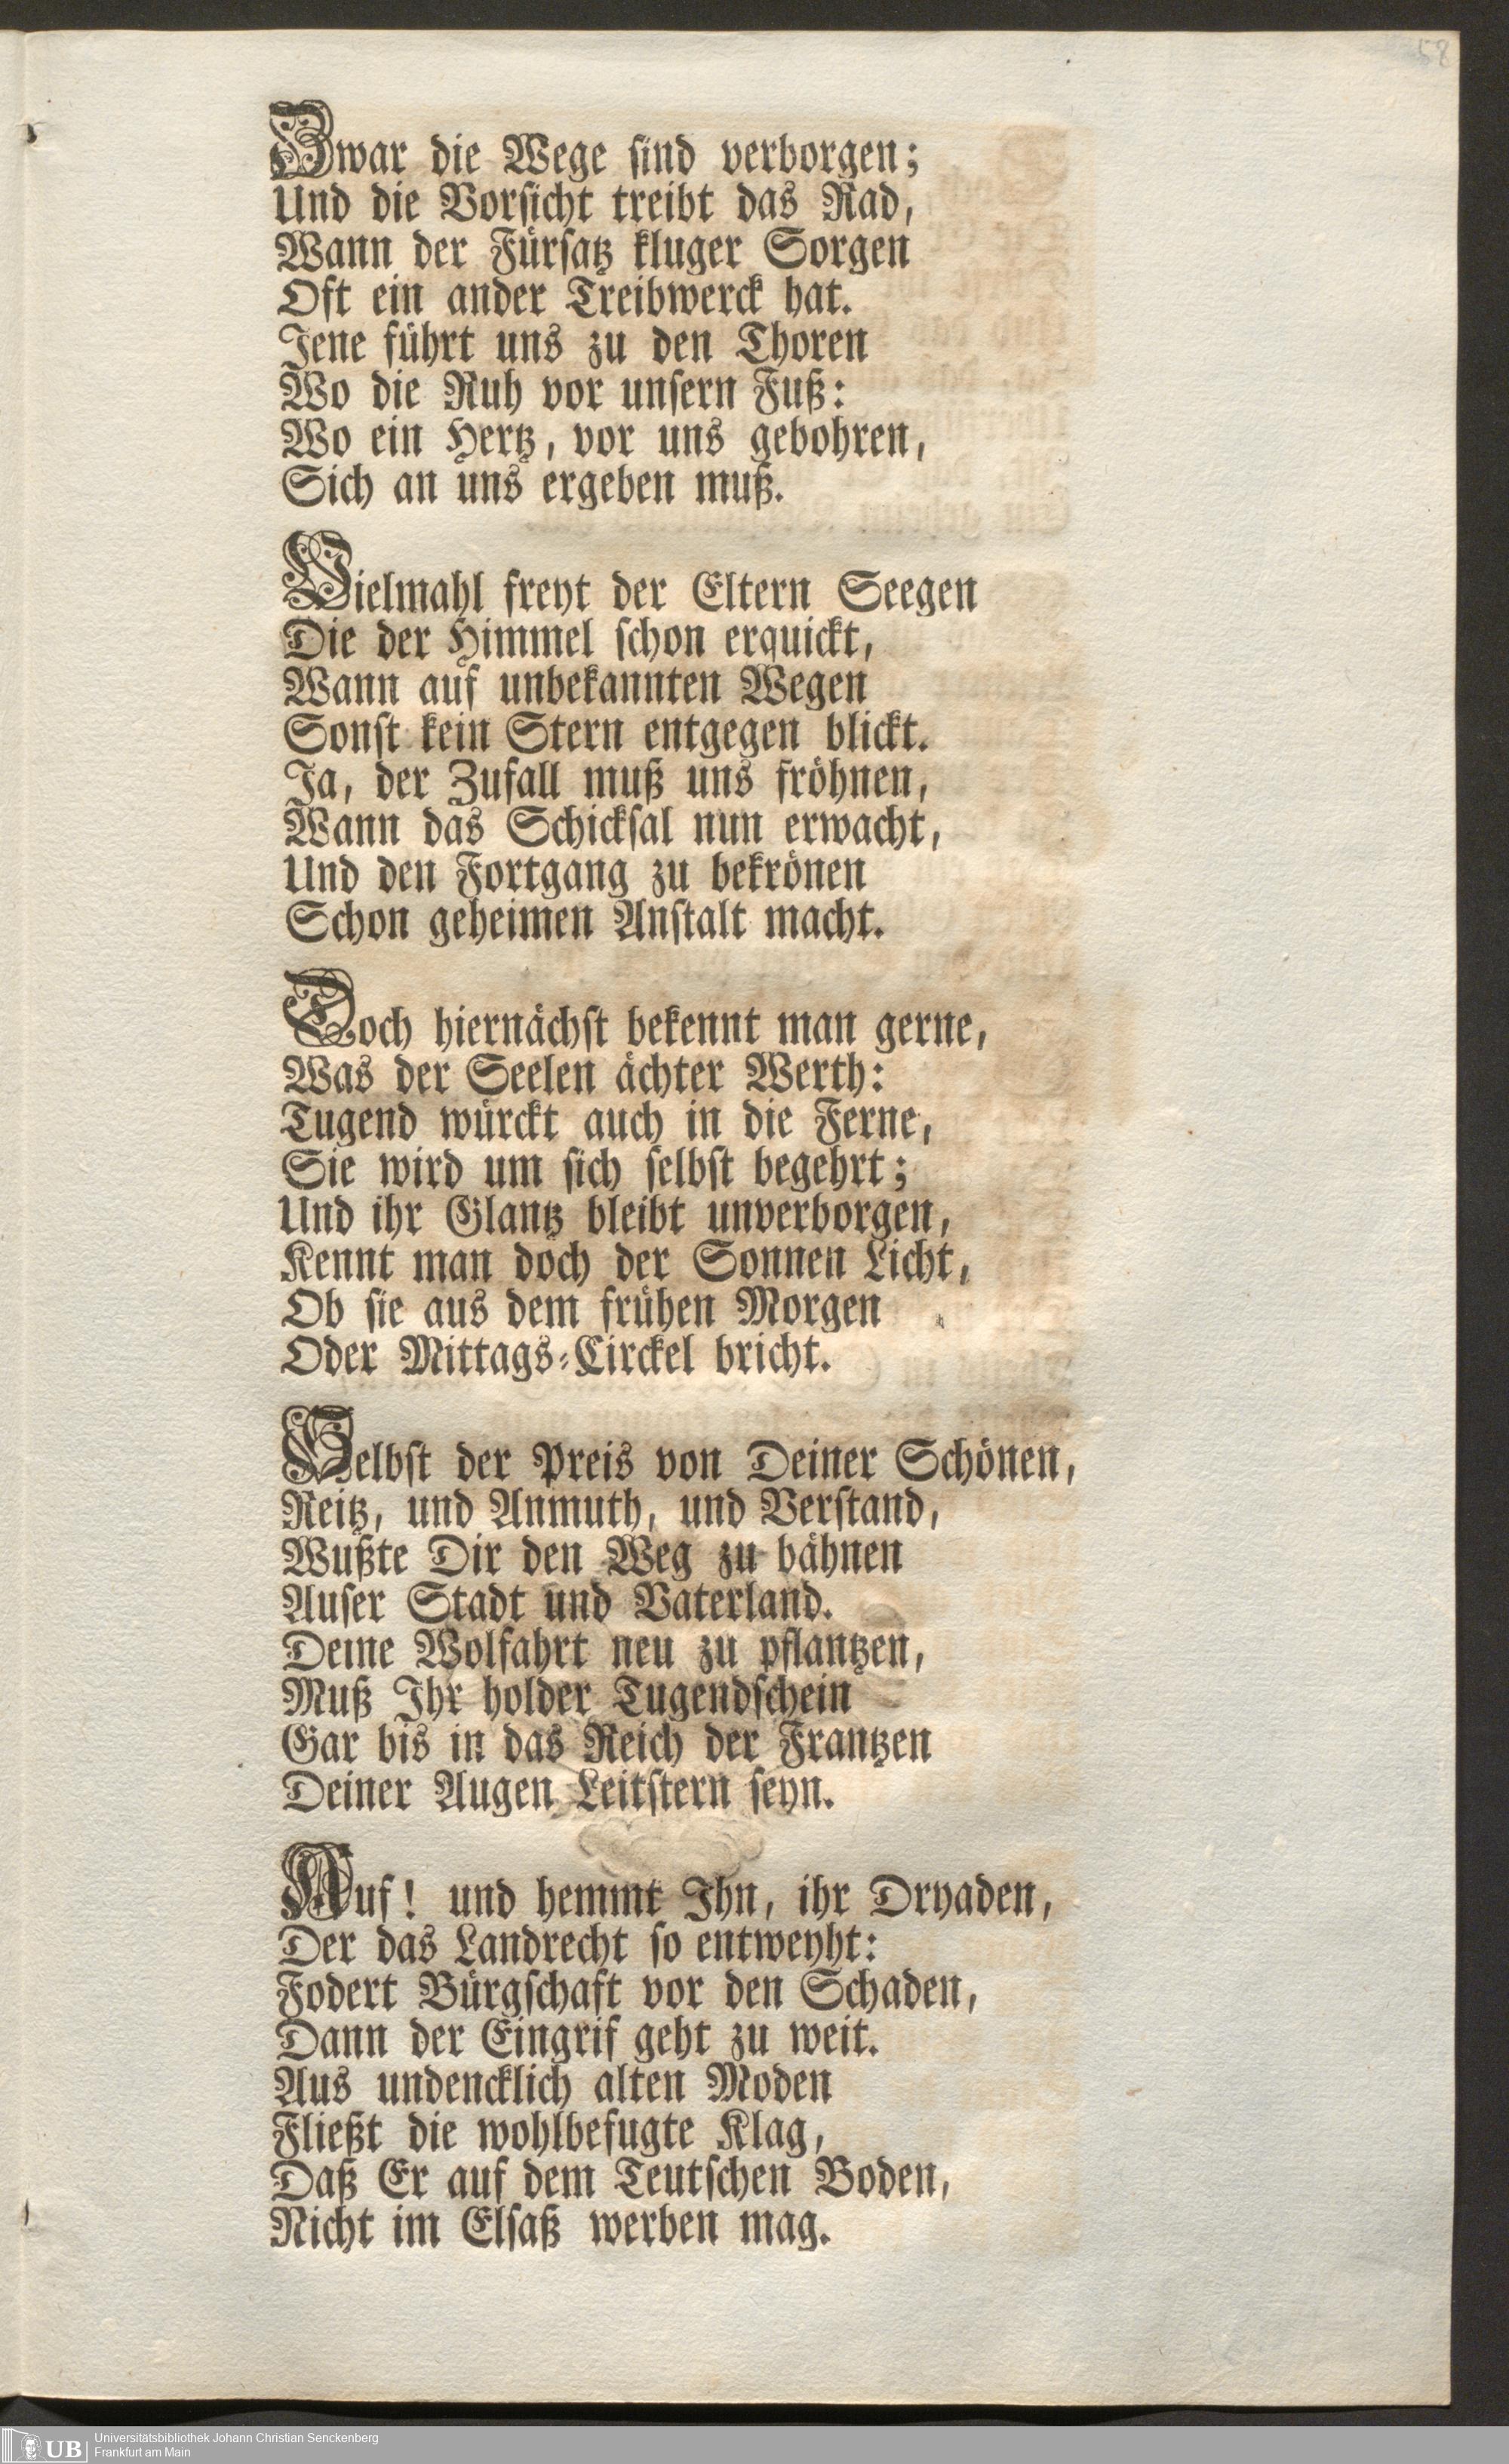 58
Zwar die Wege sind verborgen;
Und die Vorsicht treibt das Rad,
Wann der Fürsatz kluger Sorgen
Oft ein ander Treibwerck hat.
Jene führt uns zu den Thoren
Wo die Ruh vor unsern Fuß:
Wo ein Hertz, vor uns gebohren,
Sich an uns ergeben muß.
Vielmahl freyt der Eltern Seegen
Die der Himmel schon erquickt,
Wann auf unbekannten Wegen
Sonst kein Stern entgegen blickt.
Ja, der Zufall muß uns fröhnen,
Wann das Schicksal nun erwacht,
Und den Fortgang zu bekrönen
Schon geheimen Anstalt macht.
Doch hiernächst bekennt man gerne,
Was der Seelen ächter Werth:
Tugend würckt auch in die Ferne,
Sie wird um sich selbst begehrt;
Und ihr Glantz bleibt unverborgen,
Kennt man doch der Sonnen Licht,
Ob sie aus dem frühen Morgen
Oder Mittags-Circkel bricht.
Selbst der Preis von Deiner Schönen,
Reitz, und Anmuth, und Verstand,
Wußte Dir den Weg zu bähnen
Auser Stadt und Vaterland.
Deine Wolfahrt neu zu pflantzen,
Muß Ihr holder Tugendschein
Gar bis in das Reich der Frantzen
Deiner Augen Leitstern seyn.
Auf! und hemmt Ihn, ihr Dryaden,
Der das Landrecht so entweyht:
Fodert Bürgschaft vor den Schaden,
Dann der Eingrif geht zu weit.
Aus undencklich alten Moden
Fließt die wohlbefugte Klag,
Daß Er auf dem Teutschen Boden,
Nicht im Elsaß werben mag.
UB
Universitätsbibliothek Johann Christian Senckenberg
Frankfurt am Main